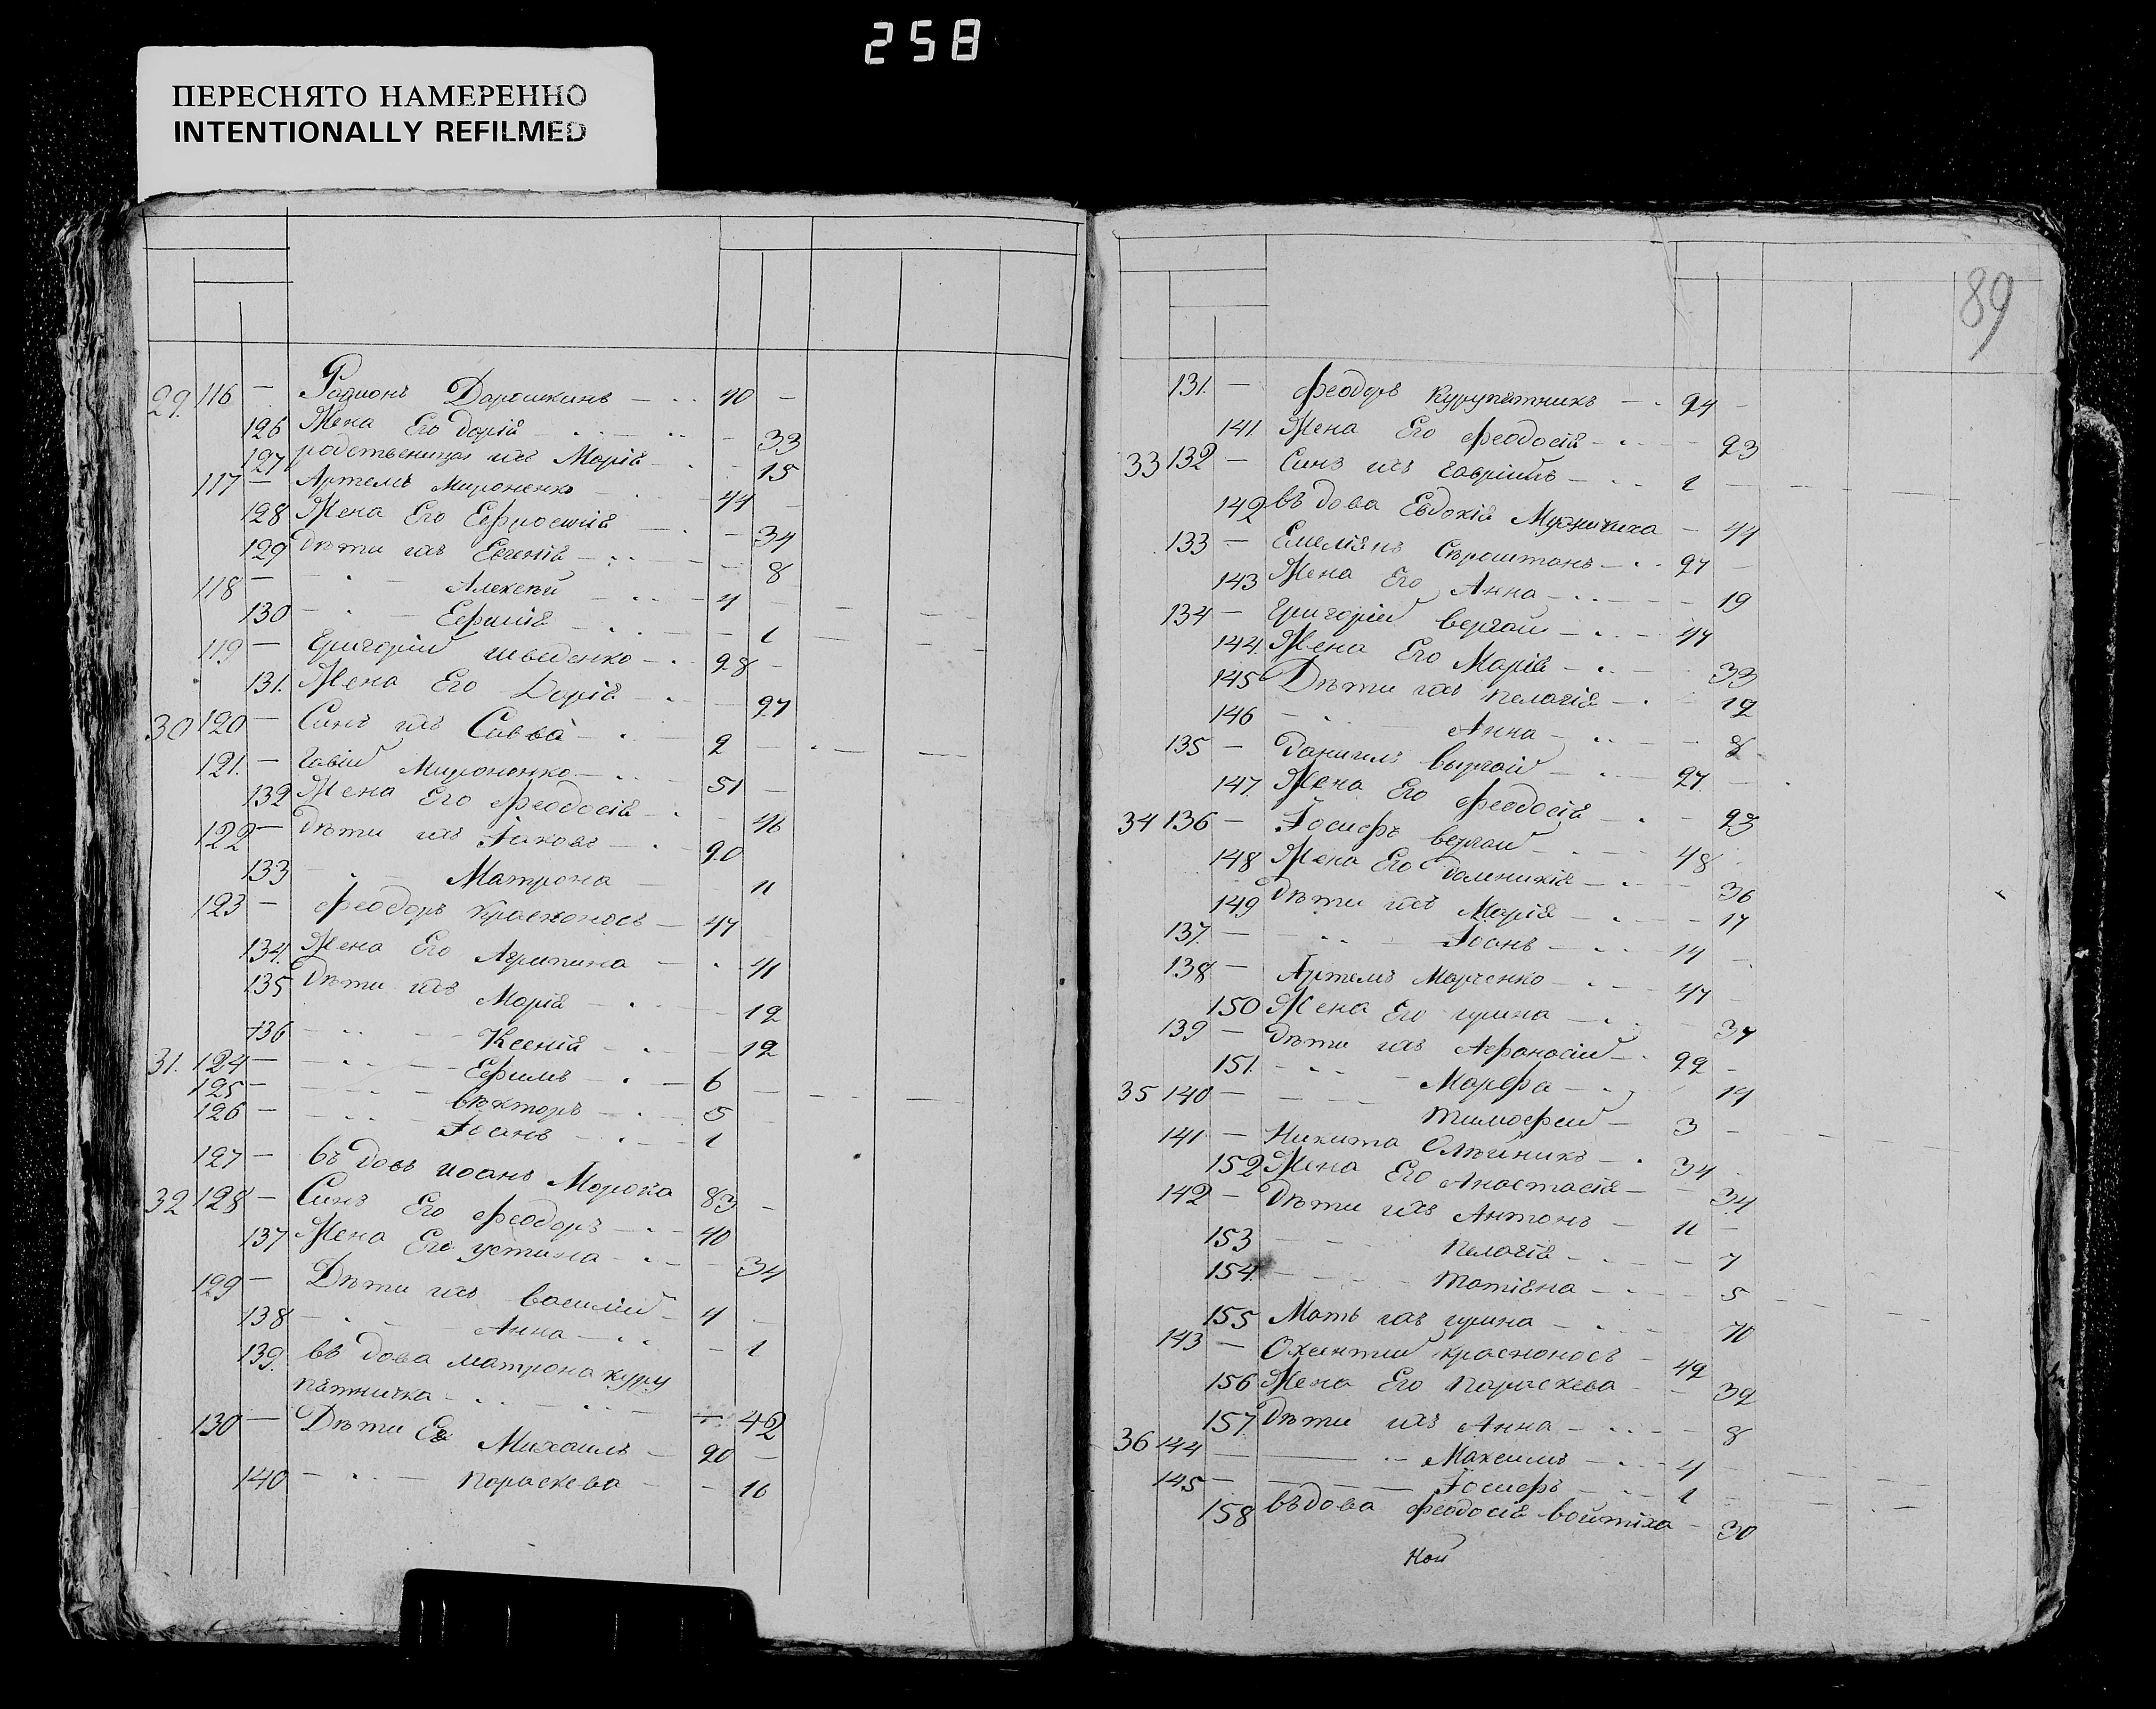 258
ПЕРЕСНЯТО НАМЕРЕННО
INTENTIONALLY REFILMED
29. 116 — Родионъ Дорошкинъ — 40 —
126 Жена Его Дарія — — 33
127 родственица ихъ Марія — — 15
117 — Артемъ Мироненко — 44 —
128 Жена Его Ефросинія — — 34
129 Дѣти ихъ Евгенія — — 8
118 — — Алексѣй — 4 —
130 — Ефимія — — 1
119 — Григорій Шведенко — 28 —
131. Жена Его Дарія — — 27
30 120 — Синъ ихъ Савва — 2 —
121. — Мироненко — 51 —
132 Жена Его Феодосія — — 46
122 — Дѣти ихъ Іаковъ — 20
133 — Матрона — — 11
123 — Феодоръ Красноносъ — 47
134. Жена Его Агрипина — — 41
135 Дѣти ихъ Марія — — 12
136 — Ксенія — — 12
31. 124 — — Ефимъ — 6 —
125 — — Вѣкторъ — 5 —
126 — — Іоанъ — 1
127 — въ довъ Иоанъ Морока 83 —
32 128 — Синъ Его Феодоръ — 40
137 Жена Его Устина — — 34
129 — Дѣти ихъ Василій — 4 —
138 — Анна — — 1
139. въ дова Матрона Куру
пѣтничка — — 42
130 — Дѣти Ея Михаилъ — 20 —
140 — Параскева — — 16
89
131. — Феодоръ Курупѣтникъ — 24 —
141. Жена Его Феодосія — — 23
33 132 — Синъ ихъ Гавріилъ — 1 —
142 въ дова Евдокія — 44
133 — Емеліянъ — 27 —
143 Жена Его Анна — — 19
134 — Григорій Вергай — 47
144. Жена Его Марія — — 33
145 Дѣти ихъ Пелагія — — 12
146 — Анна — — 8
135 — Данилъ Вергай — 27. —
147 Жена Его Феодосія — — 23
34 136 — Іосифъ Вергай — 48
148 Жена Его Домникія — — 36
149 Дѣти ихъ Марія — — 17
137. — — Іоанъ — 14 —
138 — Артемъ Марченко — 47 —
150 Жена Его Ирина — — 37
139 — Дѣти ихъ Афонасій — 22 —
151. — Марфа — — 14
35 140 — — Тимофей — 3 —
141 — Никита Олѣйникъ — 34 —
152 Жена Его Анастасія — — 34
142 — Дѣти ихъ Антонъ — 11 —
153 — Пелагія — — 7
154. — Матіяна — — 5
155 Мать ихъ Ирина — — 70
143 — Красноносъ — 42
156 Жена Его Параскева — — 32
157 Дѣти ихъ Анна — — 8
36 144 — — Максимъ — 4 —
145 — — Іосифъ — 1 —
158 въдова Феодосія Войтіха — 30
Кон